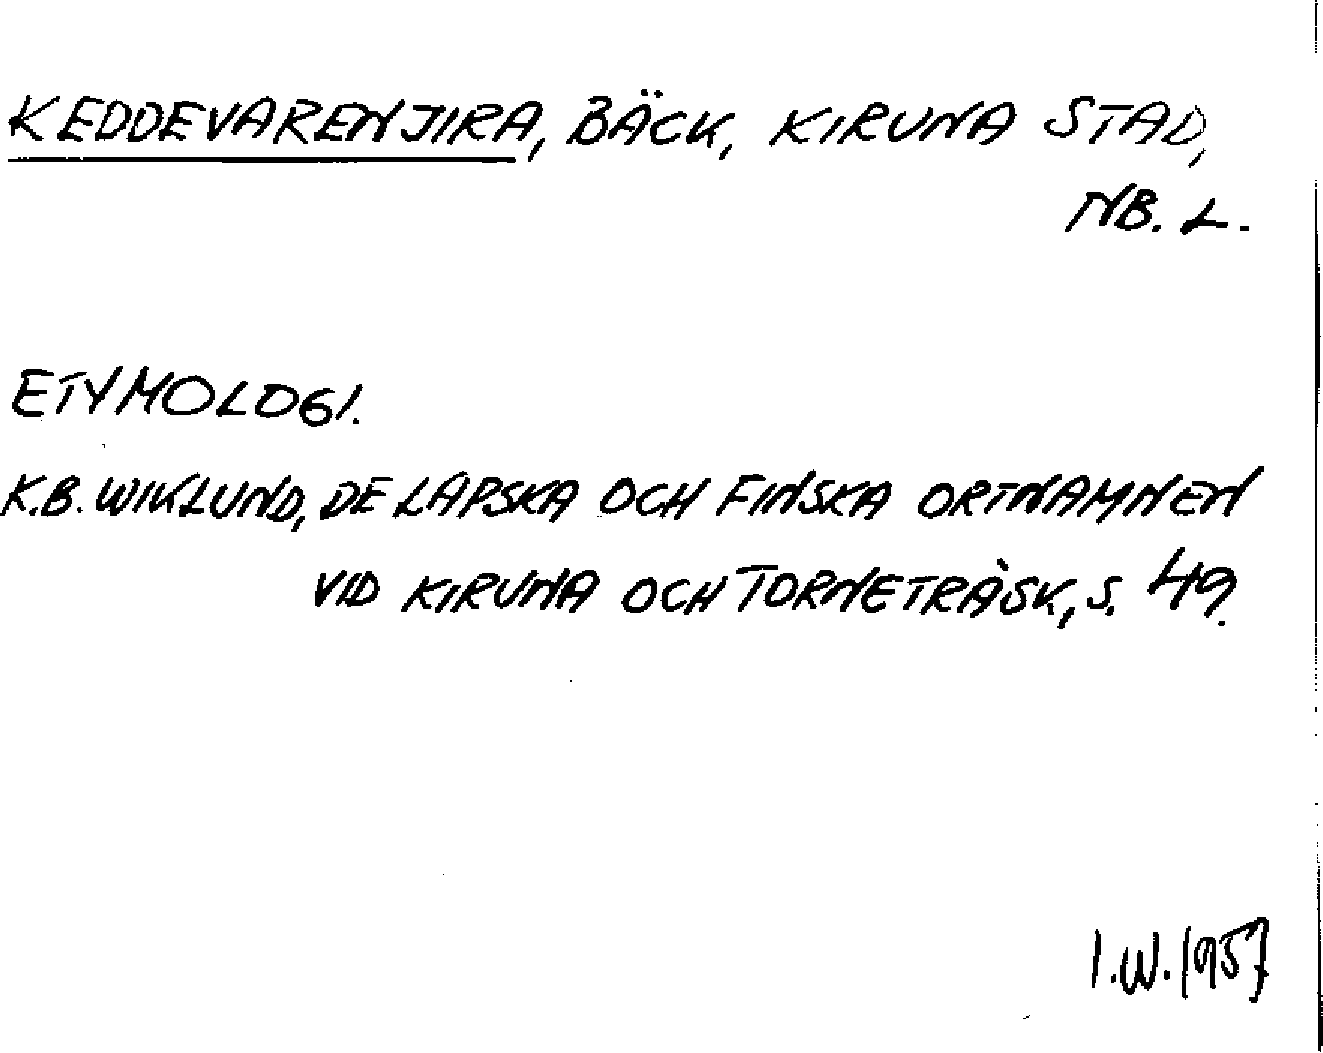 KEDDEVARENJIRA, BÄCK, KIRUNA STAD,
NB. L.
ETYMOLOGI.
K.B. WIKLUND, DE LAPSKA OCH FINSKA ORTNAMNEN
VID KIRUNA OCH TORNETRÄSK, S. 49.
I.W. 1957